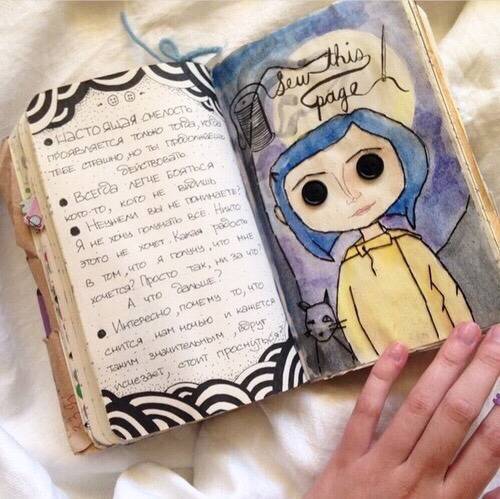 • Настоящая смелость
проявляется только тогда, когда
тебе страшно, но ты продолжаешь
действовать
• Всегда легче бояться
кого-то, кого не видишь
• Неужели вы не понимаете?
Я не хочу получать все. Никто
этого не хочет. Какая радость
в том, что я получу, что мне
хочется? Просто так, ни за что?
А что дальше?
• Интересно, почему то, что
снится нам ночью и кажется
таким значительным, вдруг
исчезает, стоит проснуться?
Sew this
page